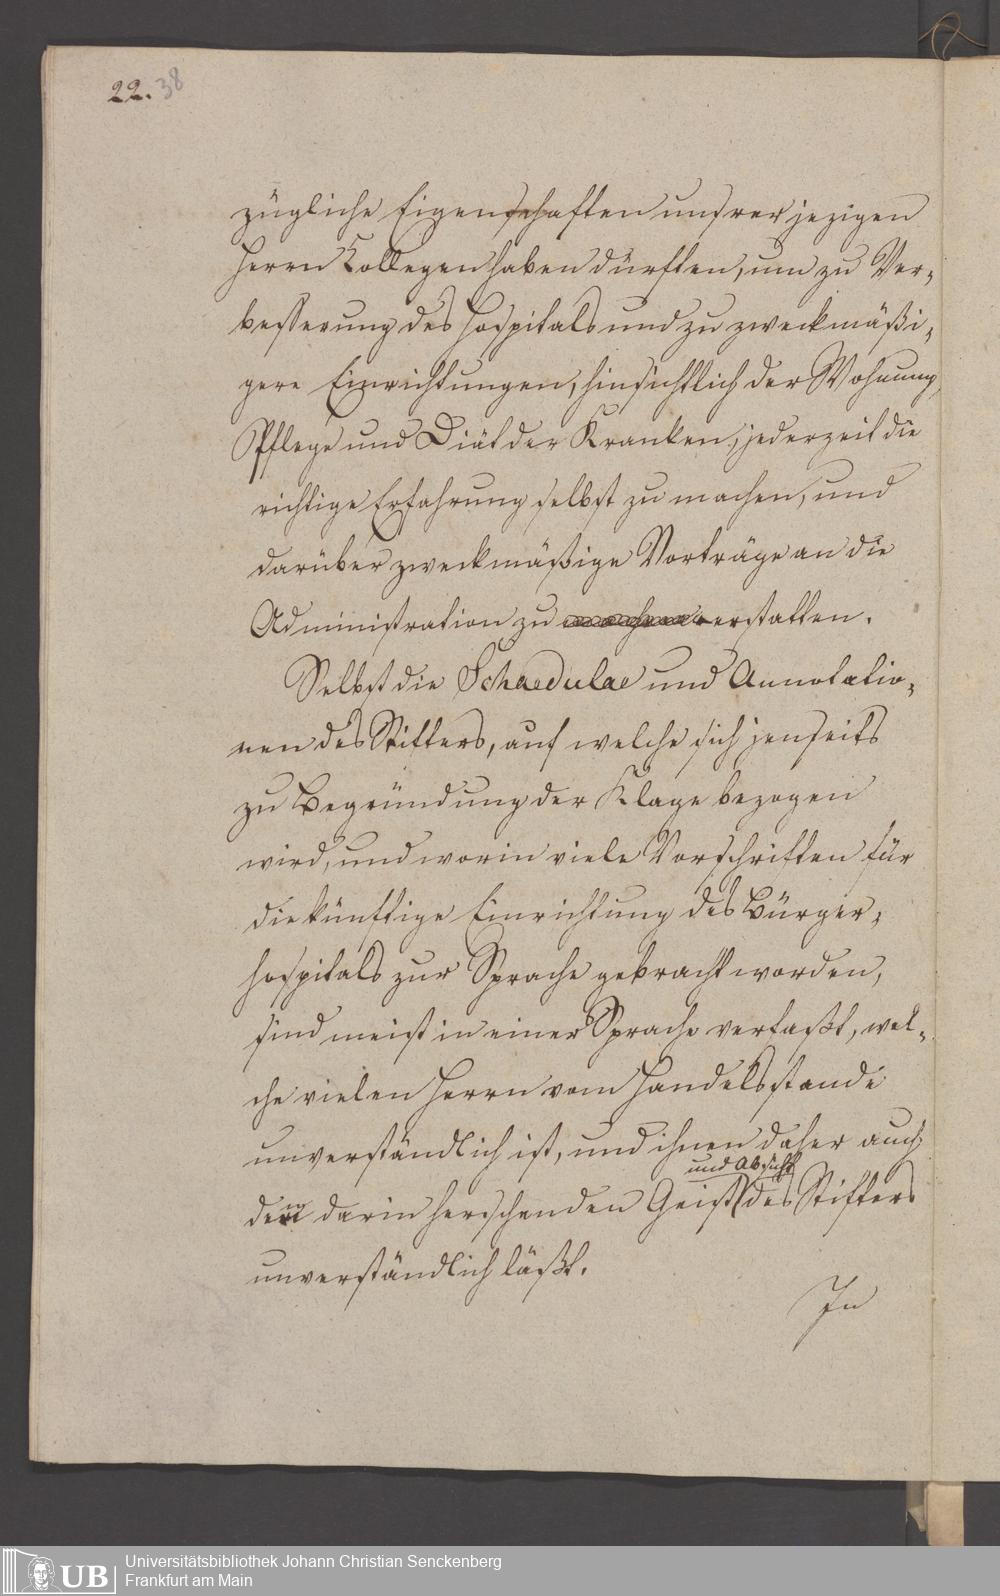 22. 38
zügliche Eigenschaften unsrer jezigen
Herrn Kollegen haben dürften, um zu Ver-
besserung des Hospitals und zu zweckmäßi-
gere Einrichtungen, hinsichtlich der Wohnung,
Pflege und Diät der Kranken, jederzeit die
richtige Erfahrung selbst zu machen, und
darüber zweckmäßige Vorträge an die
Administration zu erstatten.
Selbst die Schaedulae und Annotatio-
nen des Stifters, auf welche sich jenseits
zu Begründung der Klage bezogen
wird, und worin viele Vorschriften für
die künftige Einrichtung des Bürger-
hospitals zur Sprache gebracht worden,
sind meist in einer Sprache verfaßt, wel-
che vielen Herrn vom Handelsstande
unverständlich ist, und ihnen daher auch
und Absicht
den darin herrschenden Geist des Stifters
unverständlich läßt.
In
UB Universitätsbibliothek Johann Christian Senckenberg
Frankfurt am Main